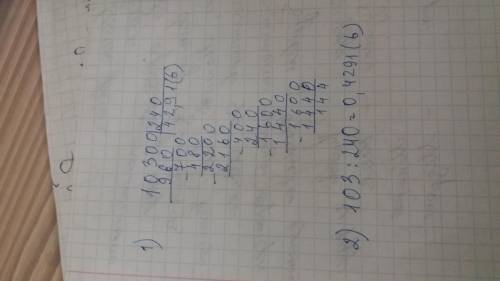 1)
10300|240
960 |42,91(6)
-700
480
-2200
2160
-400
240
-1600
1440
-1600
1440
144
2) 103:240=0,4291(6)